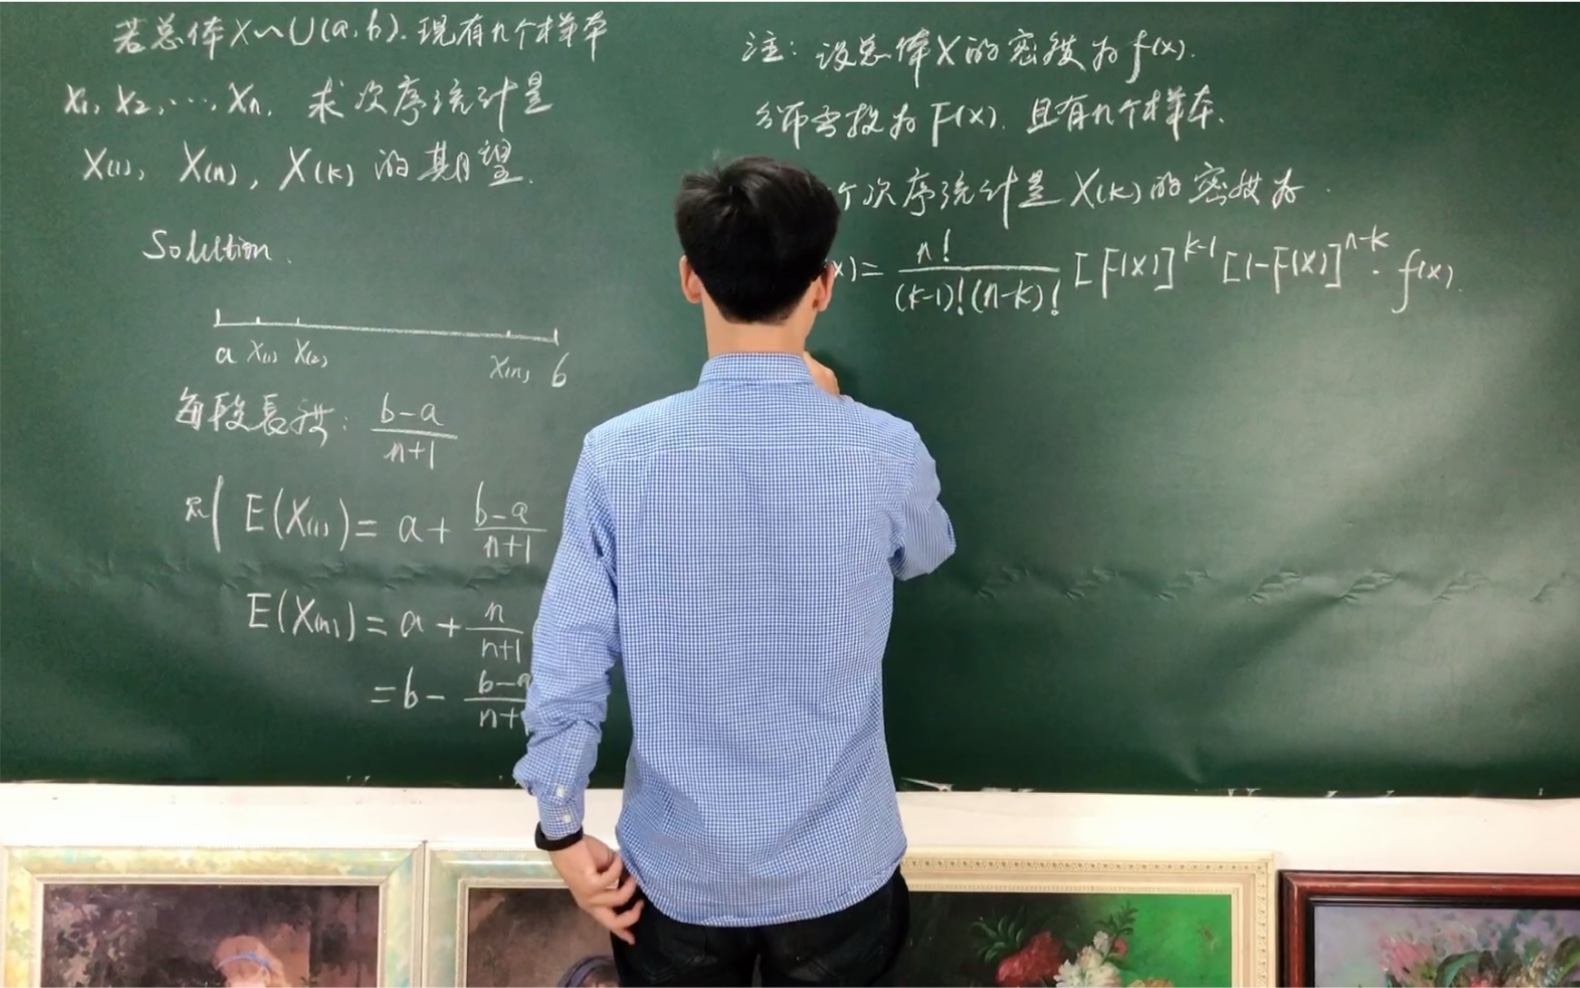 若总体X~U(a,b).现有n个样本
X₁, X₂, ⋯, Xₙ, 求次序统计量
X(1), X(n), X(k) 的期望.
Solution.
a X(1) X(2) X(n) b
每段长度: (b-a)/(n+1)
则 E(X(1)) = a + (b-a)/(n+1)
E(X(n)) = a + n/(n+1)
= b - (b-a)/(n+
注: 设总体X的密度为f(x).
分布函数为F(x). 且有n个样本.
个次序统计量X(k)的密度为
x) = n!/((k-1)!(n-k)!) [F(x)]^(k-1) [1-F(x)]^(n-k) · f(x).